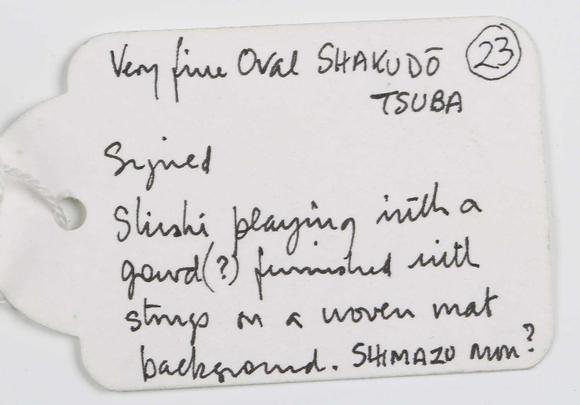 Very fine Oval SHAKUDŌ 23
TSUBA
Signed
Shishi playing with a
gourd(?) furnished with
strings on a woven mat
background. SHIMAZU mon?